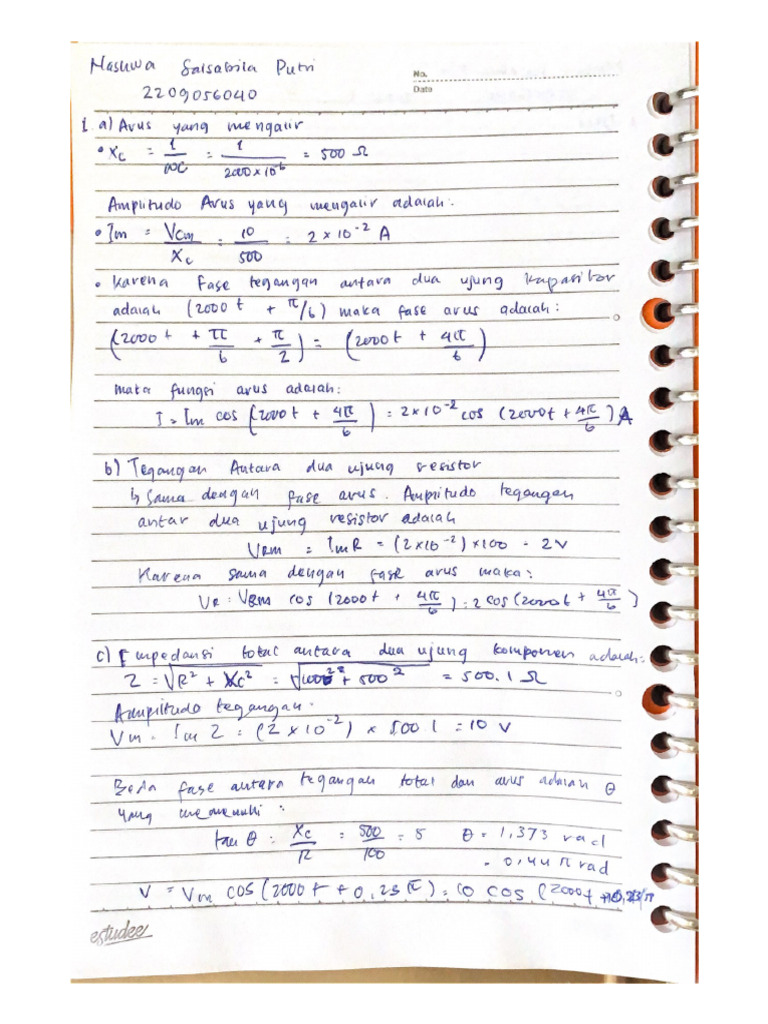 Naswa Salsabila Putri
No.
2209056040
Date
1. a) Arus yang mengalir
• Xc = 1/ωC = 1/2000 × 10⁻⁶ = 500 Ω
Amplitudo Arus yang mengalir adalah:
• Im = VCm/Xc = 10/500 = 2 × 10⁻² A
• Karena Fase tegangan antara dua ujung kapasitor
adalah (2000 t + π/6) maka fase arus adalah:
(2000 t + π/6 + π/2) = (2000 t + 4π/6)
maka fungsi arus adalah:
I = Im cos (2000t + 4π/6) = 2 × 10⁻² cos (2000t + 4π/6) A
b) Tegangan Antara dua ujung resistor
↳ Sama dengan fase arus. Amplitudo tegangan
antar dua ujung resistor adalah
VRm = ImR = (2 × 10⁻²) × 100 = 2V
Karena sama dengan fase arus maka:
VR = VRm cos (2000t + 4π/6) = 2 cos (2000t + 4π/6)
c) Impedansi total antara dua ujung komponen adalah:
Z = √R² + Xc² = √100² + 500² = 500.1 Ω
Amplitudo tegangan:
Vm = Im Z = (2 × 10⁻²) × 500.1 = 10 V
Beda fase antara tegangan total dan arus adalah θ
yang memenuhi:
tan θ = Xc/R = 500/100 = 5 θ = 1,373 rad
= 0,44π rad
V = Vm cos (2000t + 0,23π) = 10 cos (2000t + 0,23π
estudee